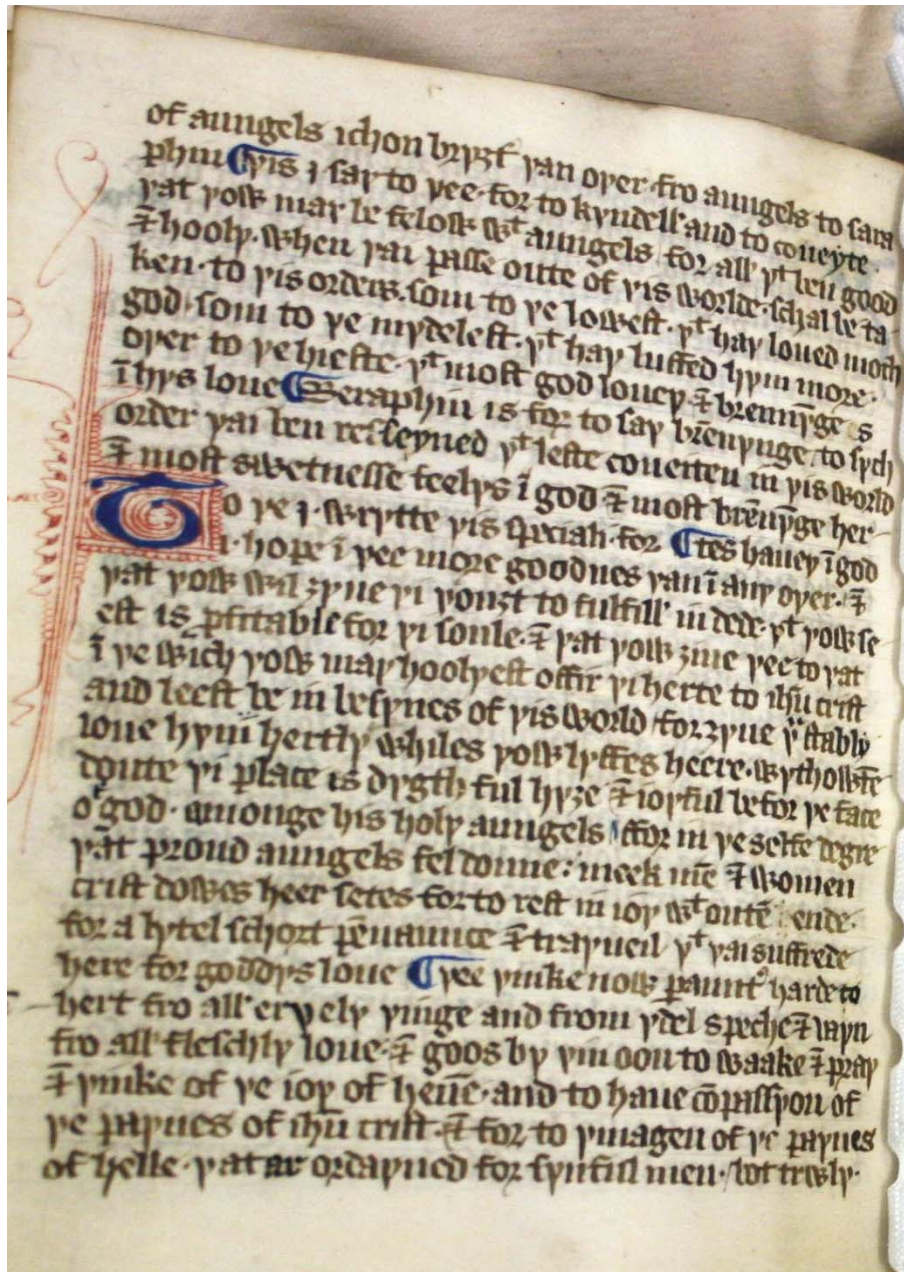 of aungels ichon bryȝt yan oyer fro aungels to sara
phin ¶ yis i say to yee for to kyndell and to coueyte
yat yow may be felow wt aungels for all yt ben good
& hooly. when yai passe oute of yis worlde. schal be ta-
ken. to yis orders. som to ye lowest. yt hay loued moch
god. som to ye mydelest. yt hay luffed hym more.
oyer to ye hieste. yt most god louey & brennyge s
ī hys loue ¶ Seraphin is for to say brēnynge. to sych
order yai ben resseyued yt leste coueiten in yis world
& most swetnesse feelys ī god & most brēnyge her-
To ye i. wrytte yis speciali. for ¶ tes hauey ī god
i. hope ī yee more goodnes yan ī any oyer. &
yat yow wil ȝyue yi yonȝt to fulfill in dede. yt yow se
est is pfitable for yi soule. & yat yow ȝiue yee to yat
ī ye wich yow may hoolyest offir yi herte to ihū crist
and leest be in besynes of yis world for ȝyue yu stably
loue hym hertly whiles yow lyffes heere. wythowtē
doute yi place is dygth ful hyȝe & ioyful befor ye face
of god. amonge his holy aungels ffor in ye selfe degre
yat proud aungels fel doune: meek mē & women
crist dowes heer setes for to rest in ioy wt outē ende.
for a lytel schort pēnaunce & trayueil yt yai suffrede
here for goddys loue ¶ yee yinke now harde to
hert fro all eryely yinge and from ydel speche & vayn
fro all fleschly loue. & goos by yin oon to waake & pray
& yinke of ye ioy of heuē. and to haue cōpassyon of
ye paynes of ihū crist. & for to ymagen of ye paynes
of helle. yat ar ordayned for synful men. bot trewly.